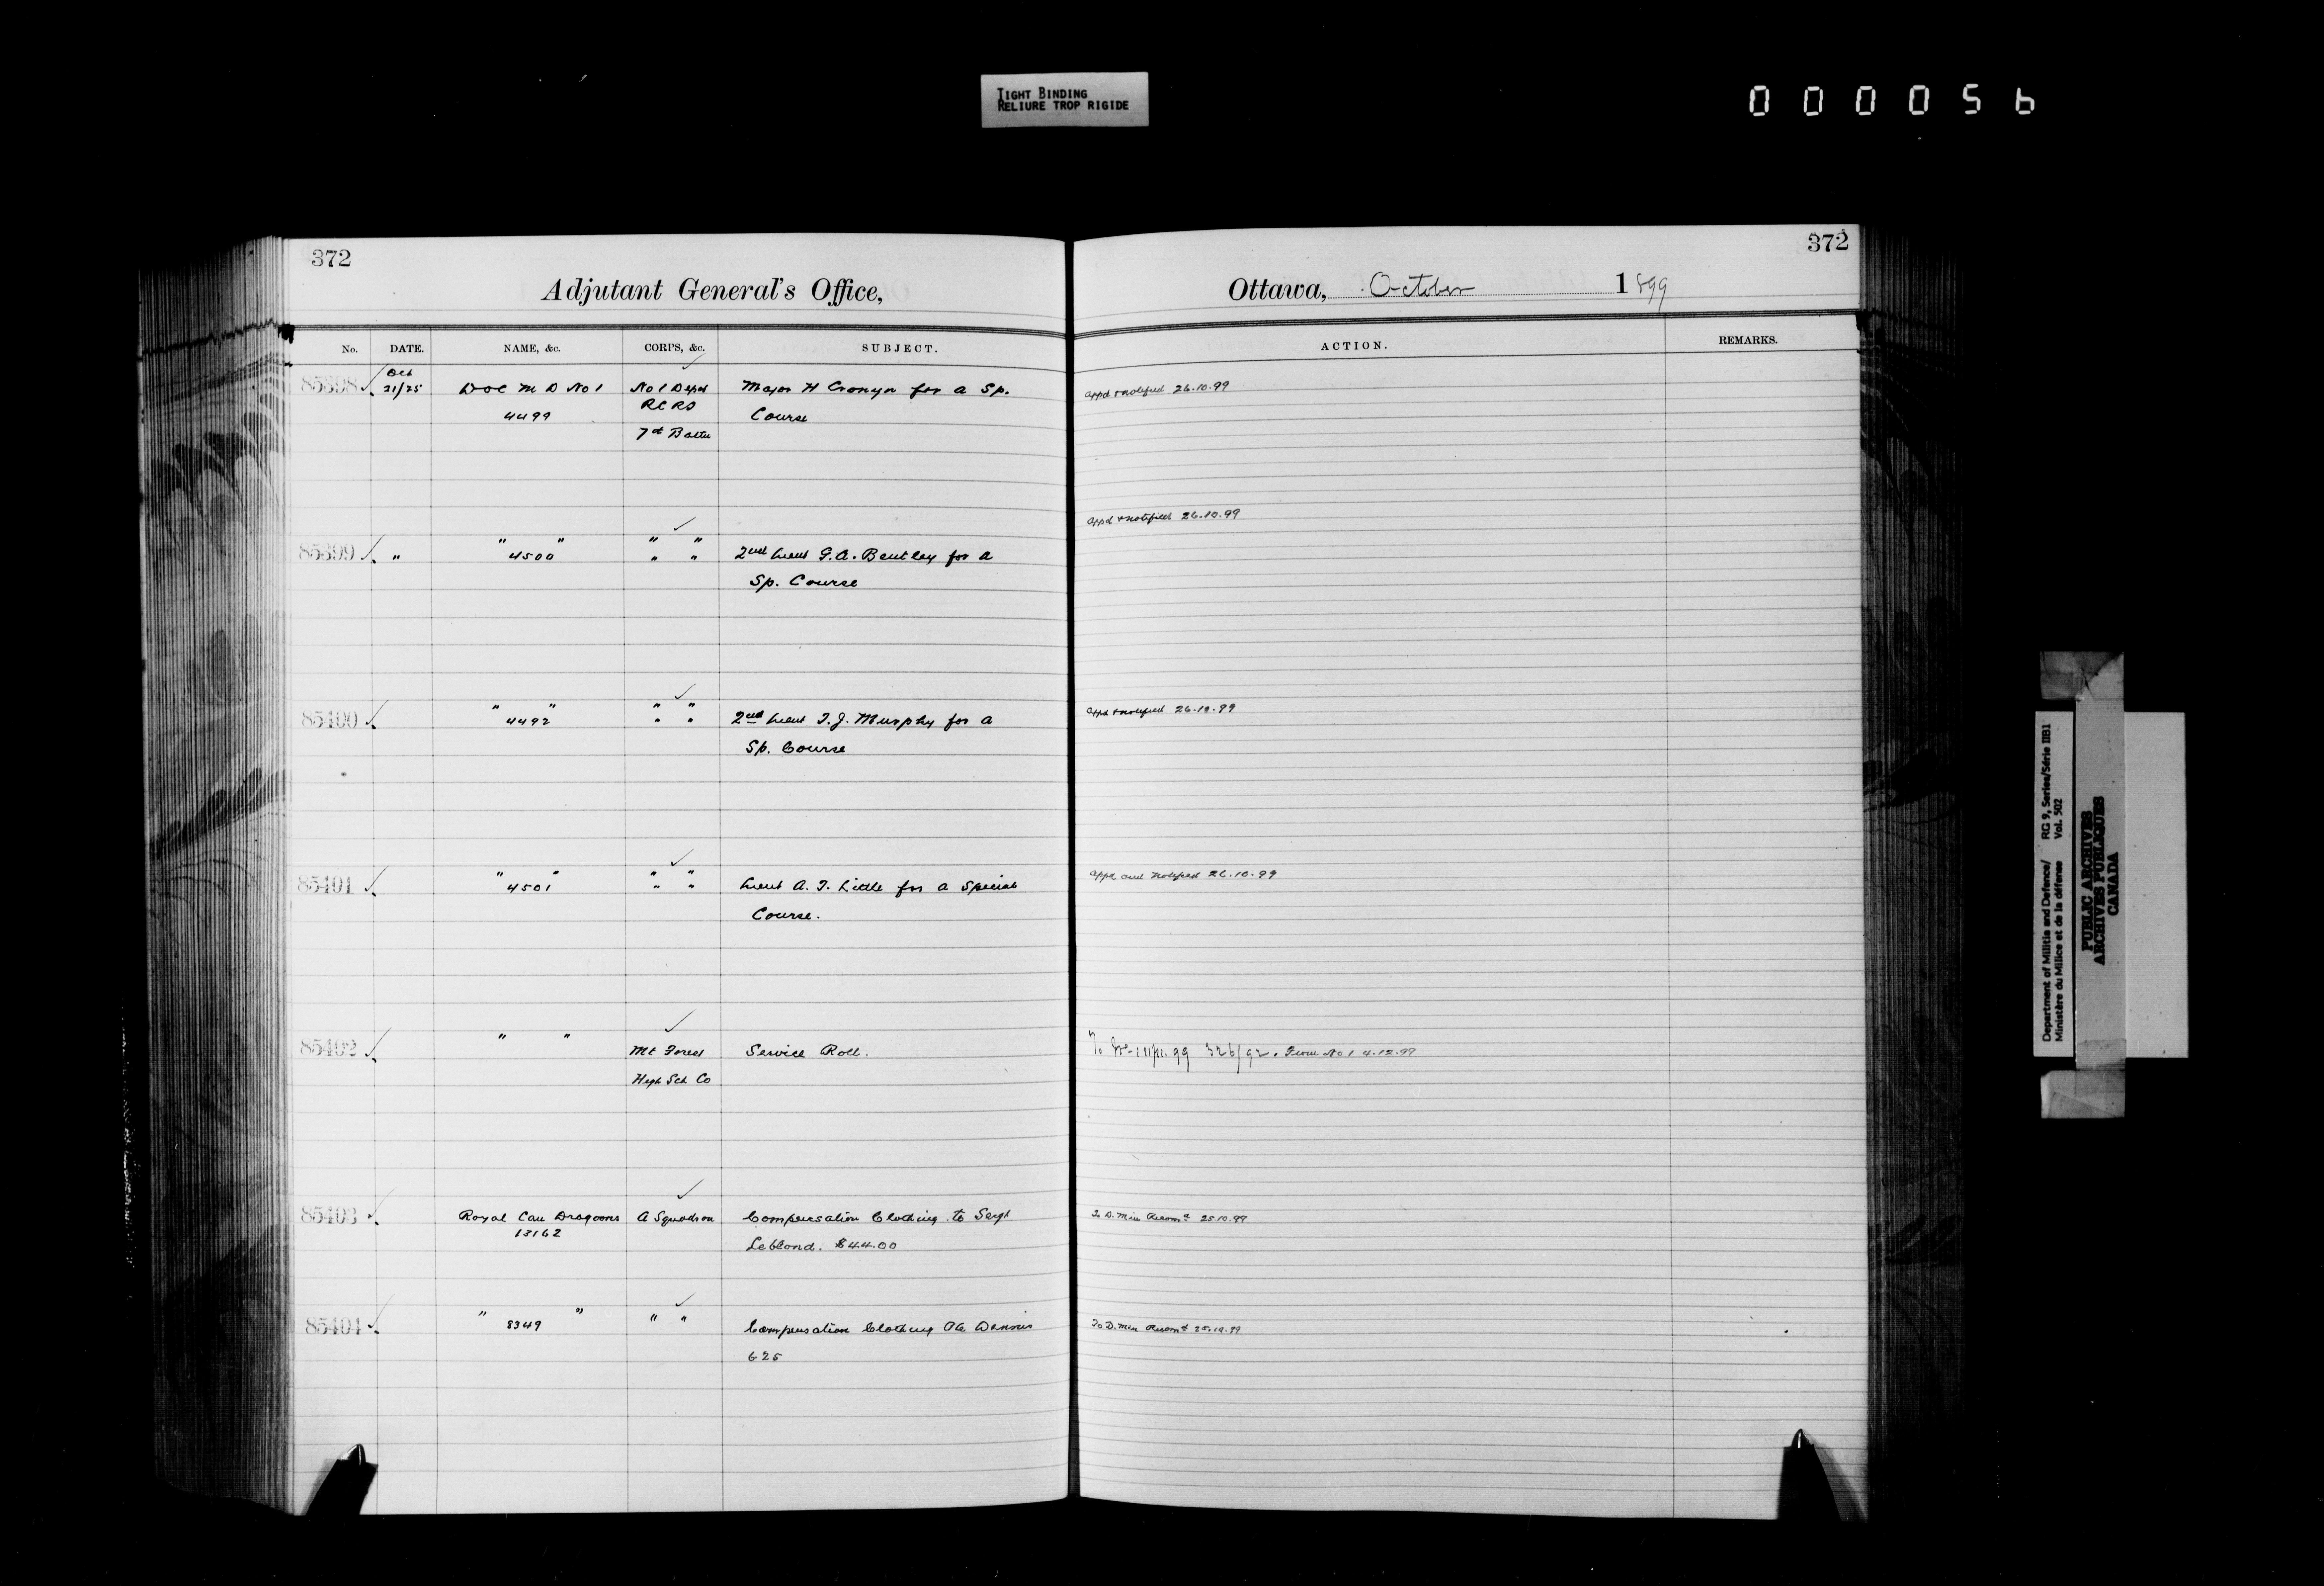 TIGHT BINDING
RELIURE TROP RIGIDE
000056
372
Adjutant General's Office,
No. DATE. NAME, &c. CORPS, &c. SUBJECT.
85398 Oct 21/25 DOC M D No 1 No 1 Depot Major H Cronyn for a Sp.
4499 RCRD Course
7th Battn
" " " "
85399 " 4500 " " 2nd Lieut G.A. Bentley for a
Sp. Course
" " " "
85400 4492 " " 2nd Lieut T.J. Murphy for a
Sp. Course
" " " "
85401 4501 " " Lieut A. T. Little for a Special
Course.
" "
85402 Mt Forest Service Roll.
High Sch Co
85403 Royal Can Dragoons A Squadron Compensation Clothing to Sergt
13162 Leblond. $44.00
" " " "
85404 8349 Compensation Clothing Pte Dennis
625
372
Ottawa, October 1899
ACTION. REMARKS.
appd & notified 26.10.99
appd & notified 26.10.99
appd & notified 26.10.99
appd and notified 26.10.99
326/92. From No 1 4.12.99
To D. Min 25.10.99
To D. Min 25.10.99
Department of Militia and Defence/ RG 9, Series/Série IIB1
Ministère du Milice et de la défense Vol. 502
PUBLIC ARCHIVES
ARCHIVES PUBLIQUES
CANADA